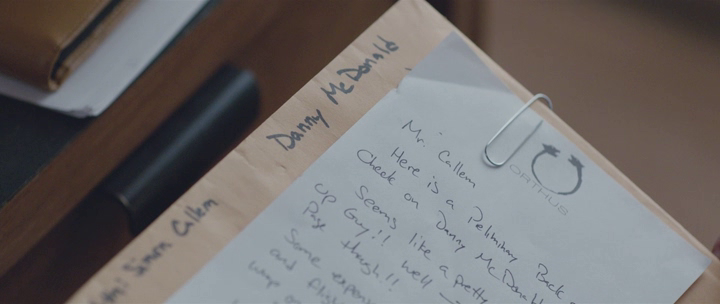 Danny McDonald
Simon Callem
ORTHUS
Mr. Callem
Here is a Peliminary Back
Check on Danny McDonal
Seems like a petty
up Guy!! Well
Pays though!!
Some expen
and